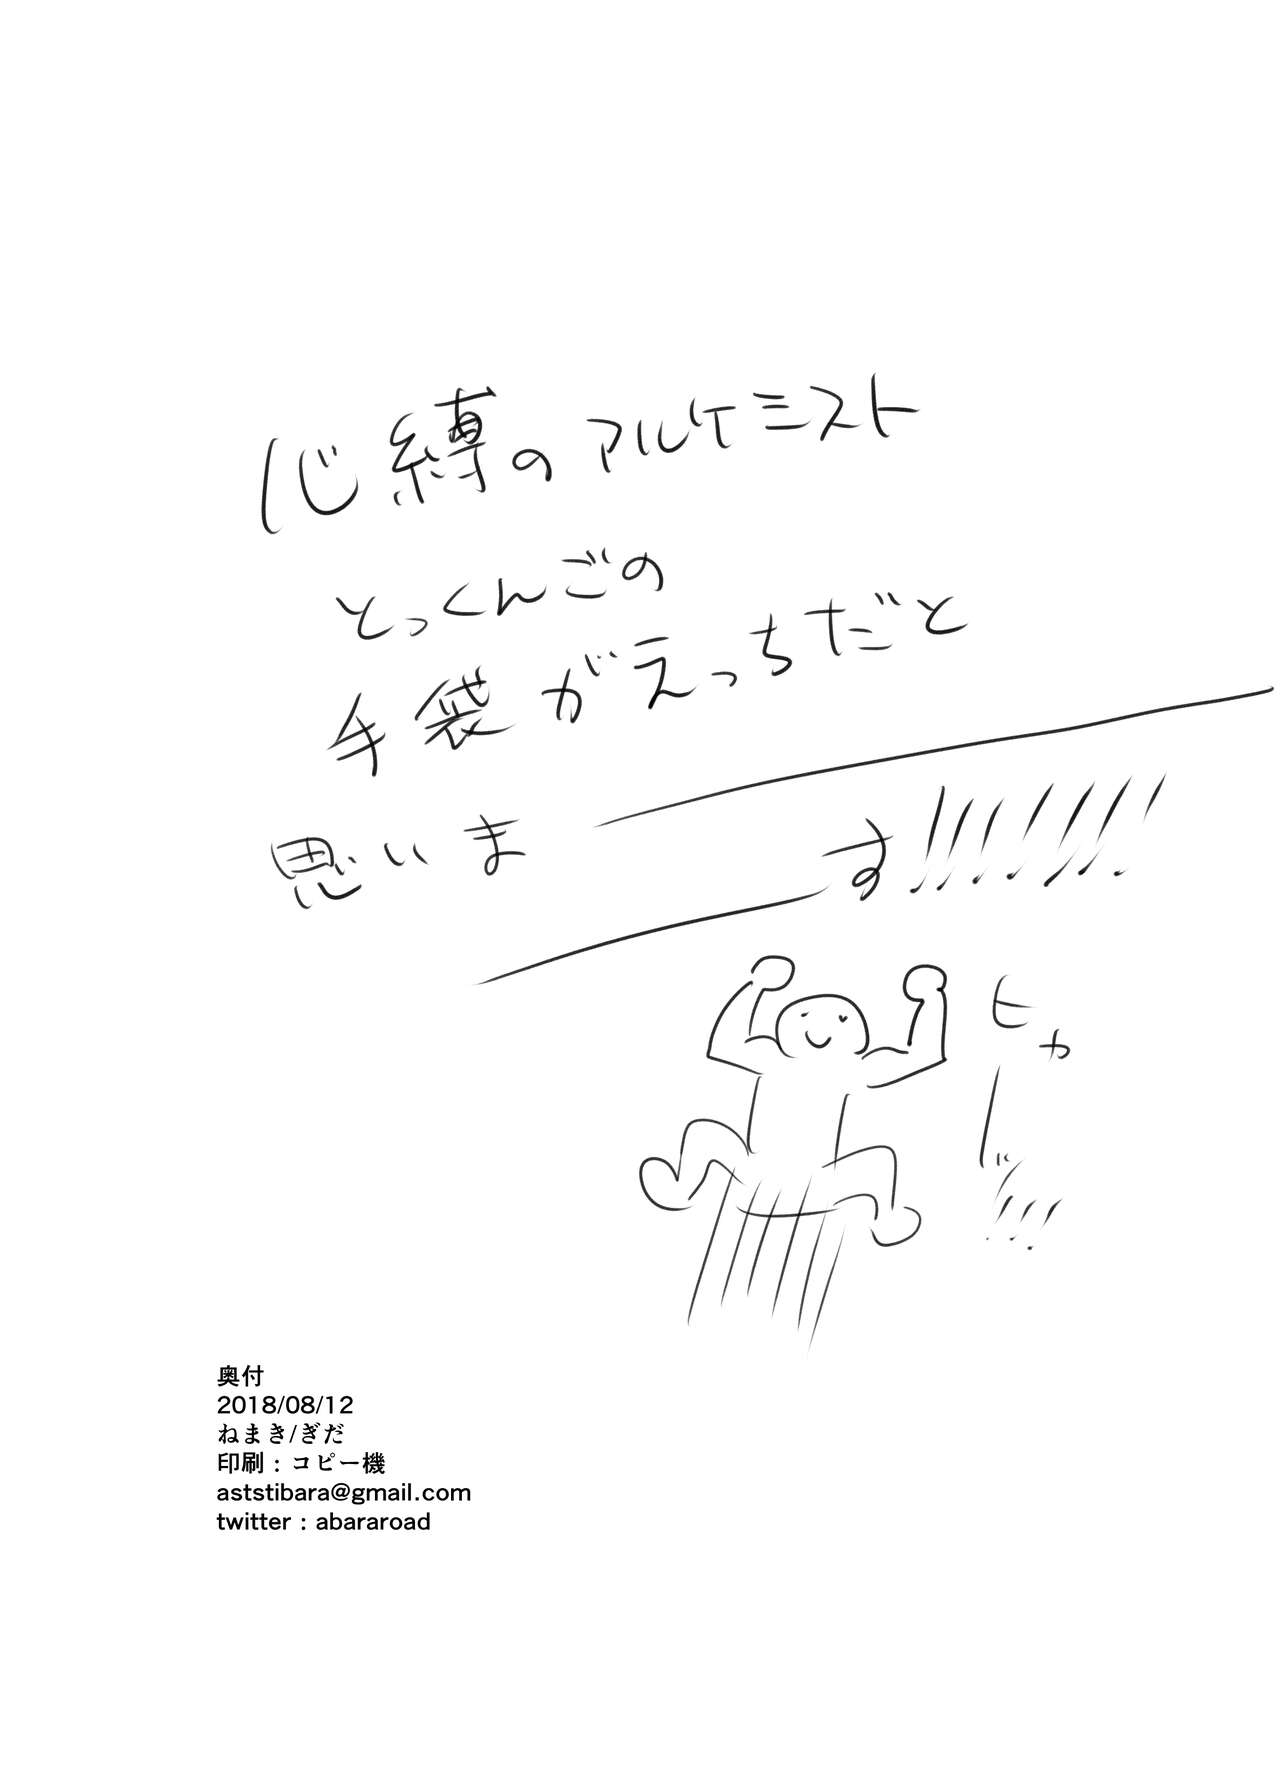 心縛のアルケミスト
とっくんごの
手袋がえっちだと
思いま――す!!!!!!!
ヒャーッ!!!
奥付
2018/08/12
ねまき/ぎだ
印刷:コピー機
aststibara@gmail.com
twitter:abararoad